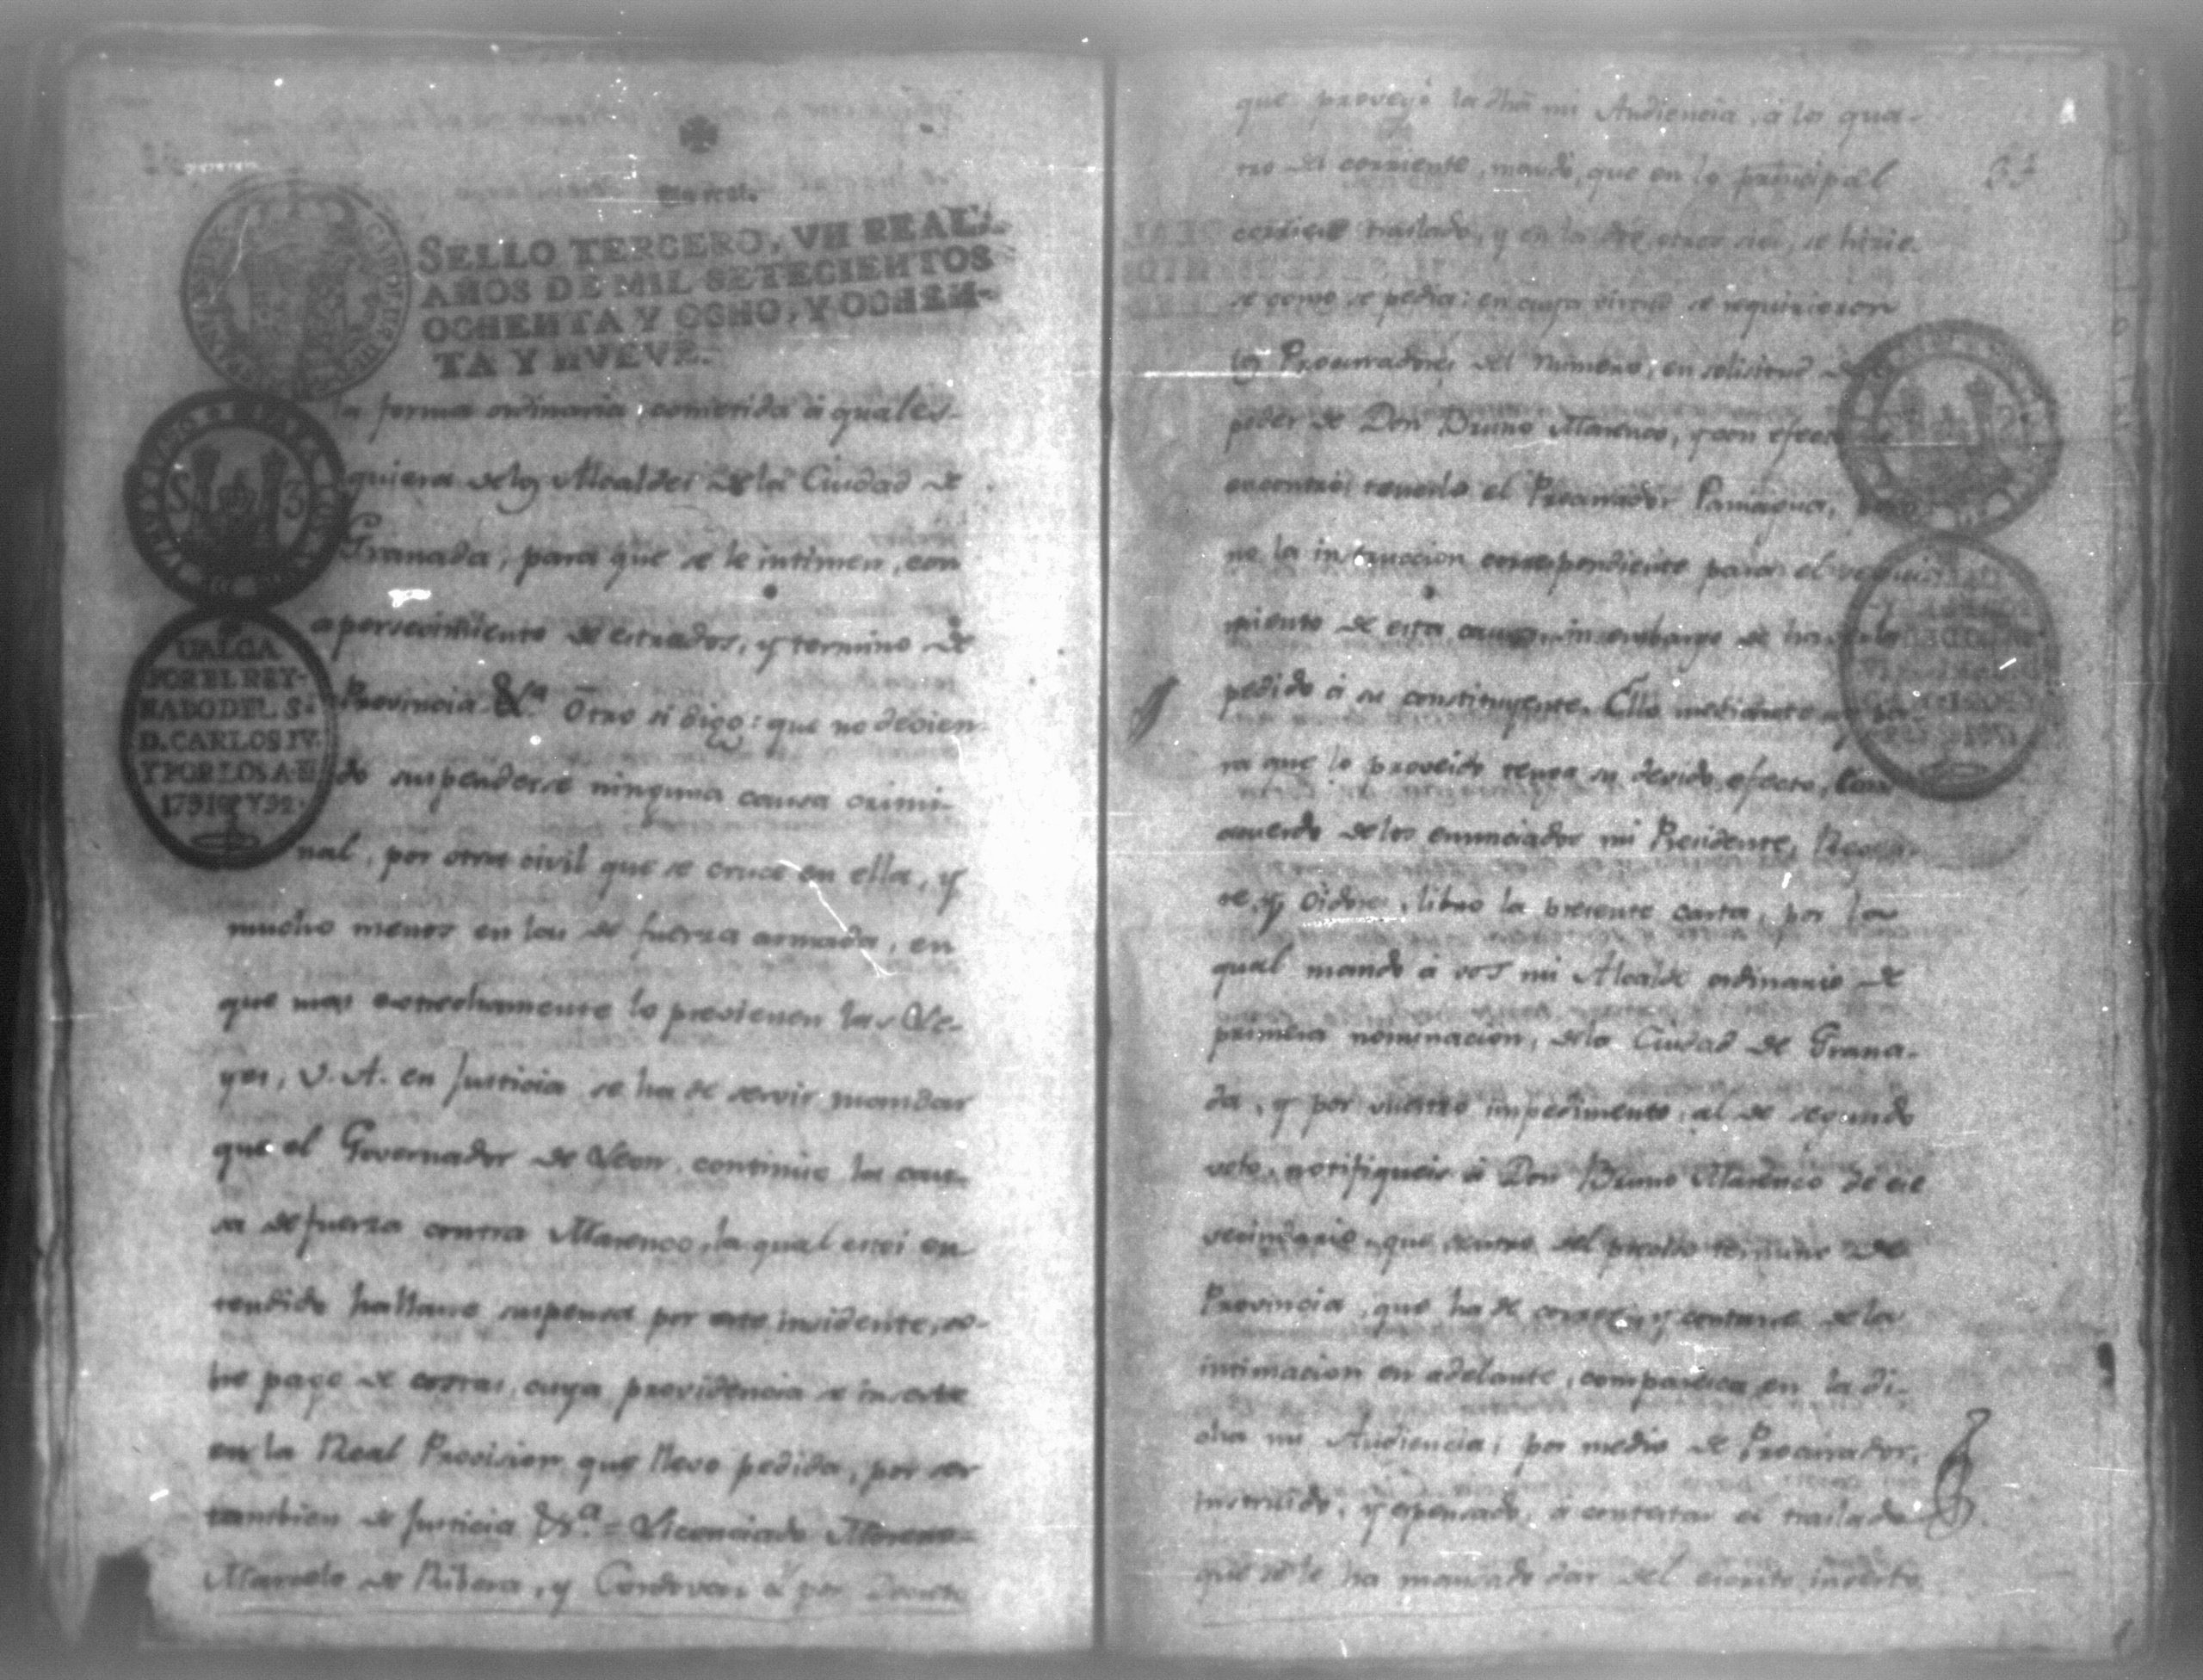 Un real.
SELLO TERCERO, VN REAL,
AÑOS DE MIL SETECIENTOS
OCHENTA Y OCHO, Y OCHEN-
TA Y NUEVE.
S 3
VALGA
POR EL REY-
NADO DEL S.
D. CARLOS IV.
Y POR LOS A. D
1791 Y 92.
la forma ordinaria, cometida à quales-
quiera delos Alcaldes de la Ciudad de
Granada, para que se le intimen, con
apersevimiento de estrados, y termino de
Provincia &a. Otro si digo: que no devien-
do suspenderse ninguna causa crimi-
nal, por otra civil que se cruce en ella, y
mucho menos en las de fuerza armada, en
que mas estrechamente lo previenen las Le-
yes, V. A. en Justicia se ha de servir mandar
que el Governador de Leon, continue la cau-
sa de fuerza contra Marenco, la qual estoi en
tendido hallarse suspensa por este insidente, so-
bre pago de costas, cuya providencia se inserte
en la Real Provision que llevo pedida, por ser
tambien de Justicia &a. = Licenciado
Marcelo de Ribera, y Cordovan à por Decreto
que proveyó la dha mi Audiencia, á los qua-
tro del corriente, mandó, que en lo principal
corriese traslado, y en la de otro si, se hicie-
se como se pedia: en cuya virtud se requirieron
los Procuradores del Numero, en solisitud de
poder de Don Bruno Marenco, y con efecto
encontró tenerlo el Procurador Paniagua,
no la instruccion correspondiente para el
miento de esta causa, sin embargo de
pedido á su constituyente. En cuya
ra que lo proveido tenga su devido efecto, con
acuerdo delos enunciados mi Presidente, Regen-
te, y Oidores, libro la presente carta, por la
qual mando à vos mi Alcalde ordinario de
primera nominacion, dela Ciudad de Grana-
da, y por vuestro impedimento, al de segundo
voto, notifiqueis á Don Bruno Marenco de ese
vecindario, que dentro del preciso termino de
Provincia, que ha de correr, y contarse dela
intimacion en adelante, comparesca en la di-
cha mi Audiencia, por medio de Procurador,
instruido, y espensado, à contestar el traslado
que se le ha mandado dar del escrito inserto